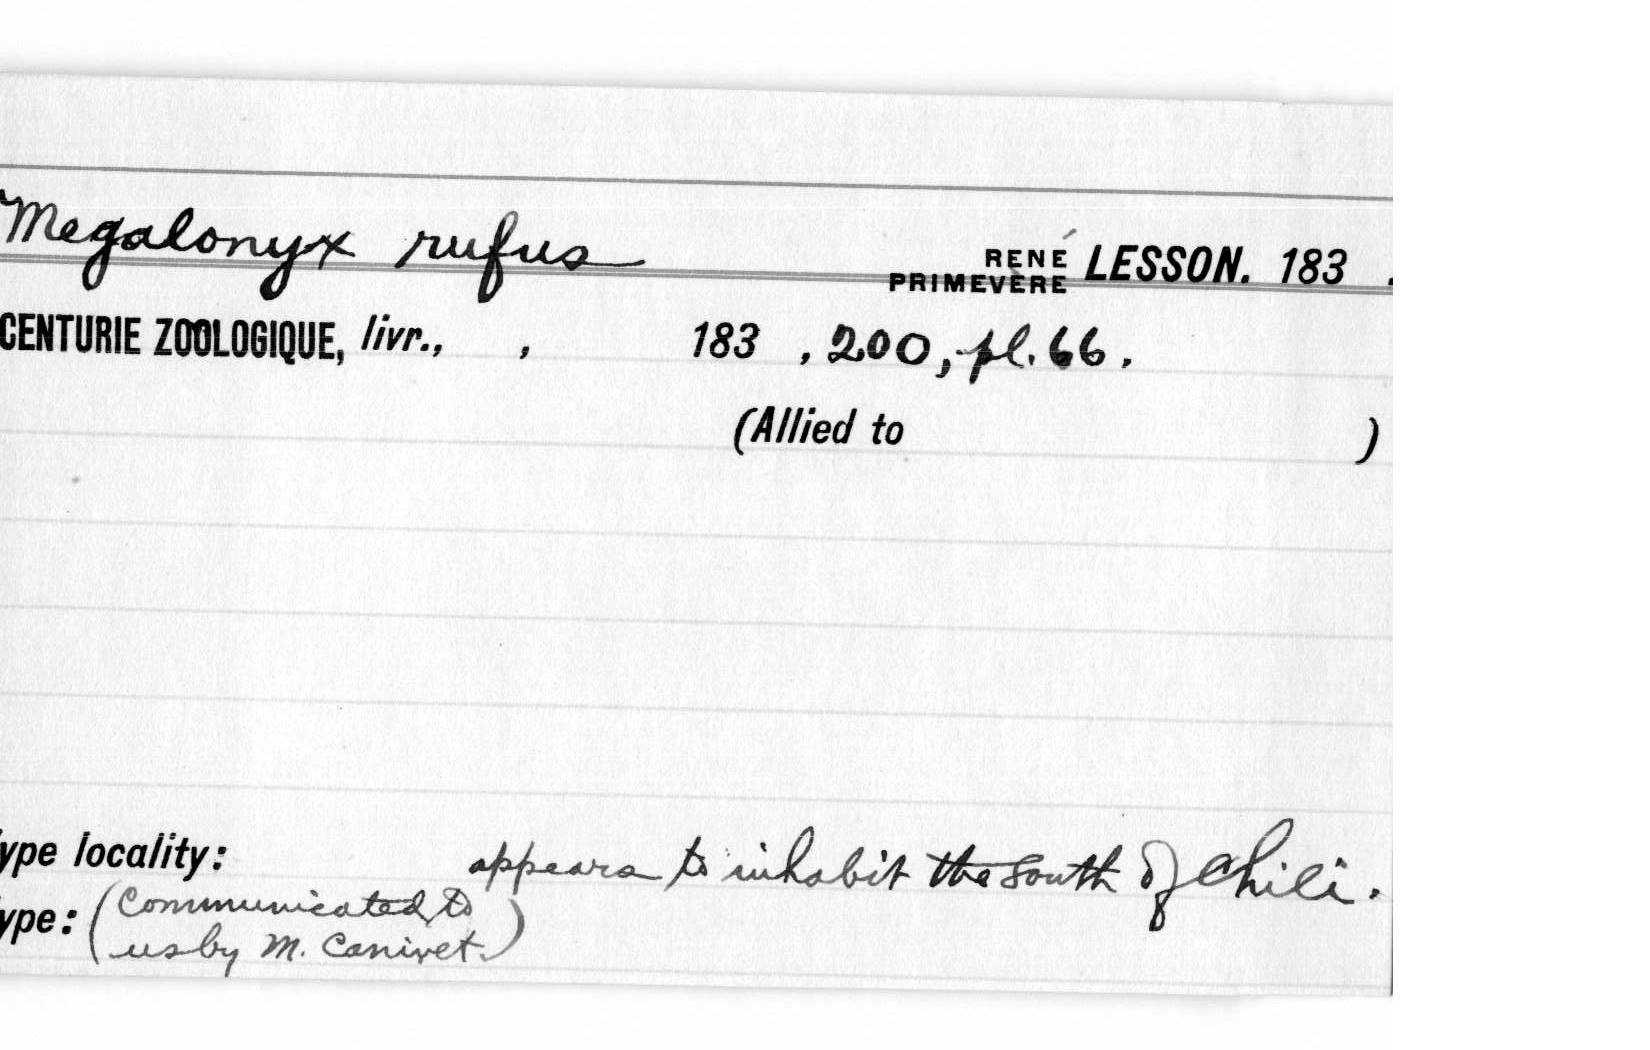 Megalonyx rufus RENÉ PRIMEVÈRE LESSON. 183 .
CENTURIE ZOOLOGIQUE, livr., , 183 , 200, pl. 66.
(Allied to )
ype locality: appears to inhabit the south of Chili.
ype: (Communicated to
us by M. Canivet.)